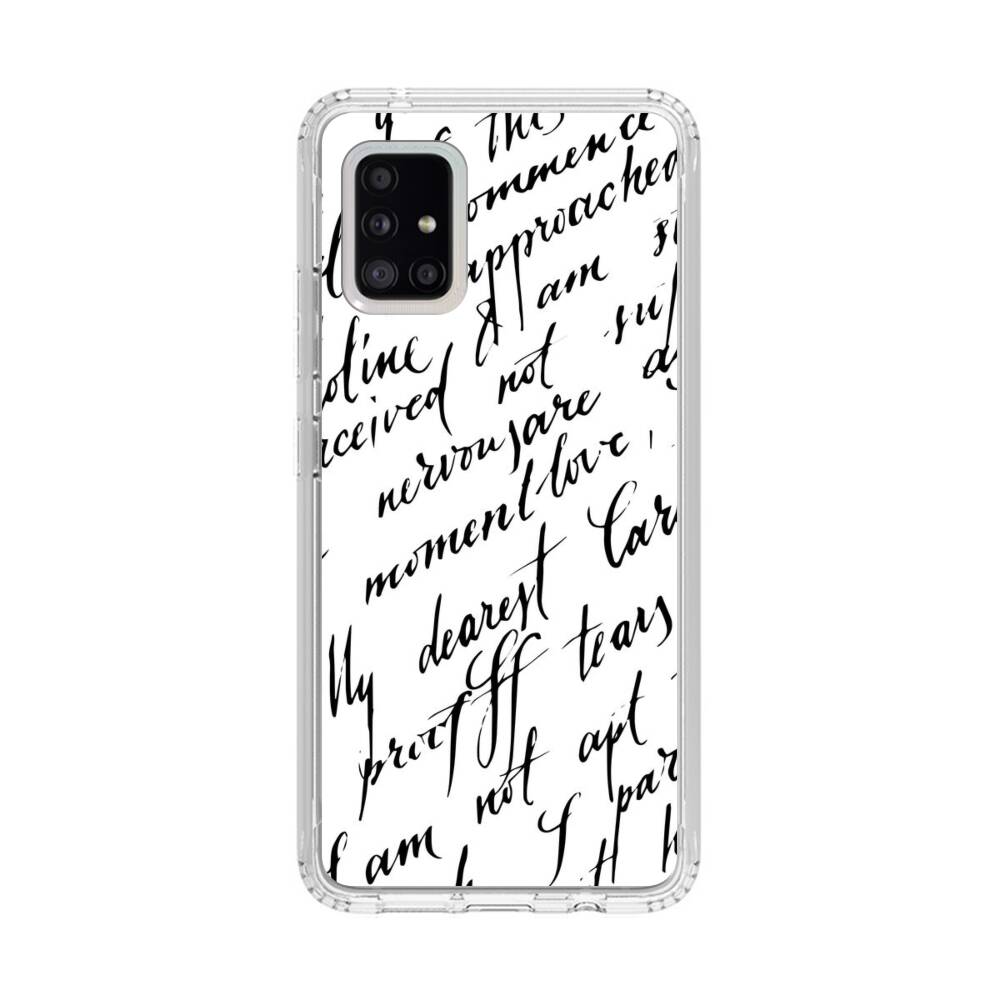 this
ommence
approached
oline I am
rceived not suf
nervous are
moment love,
My dearest Car
proof tears
I am not apt
I par